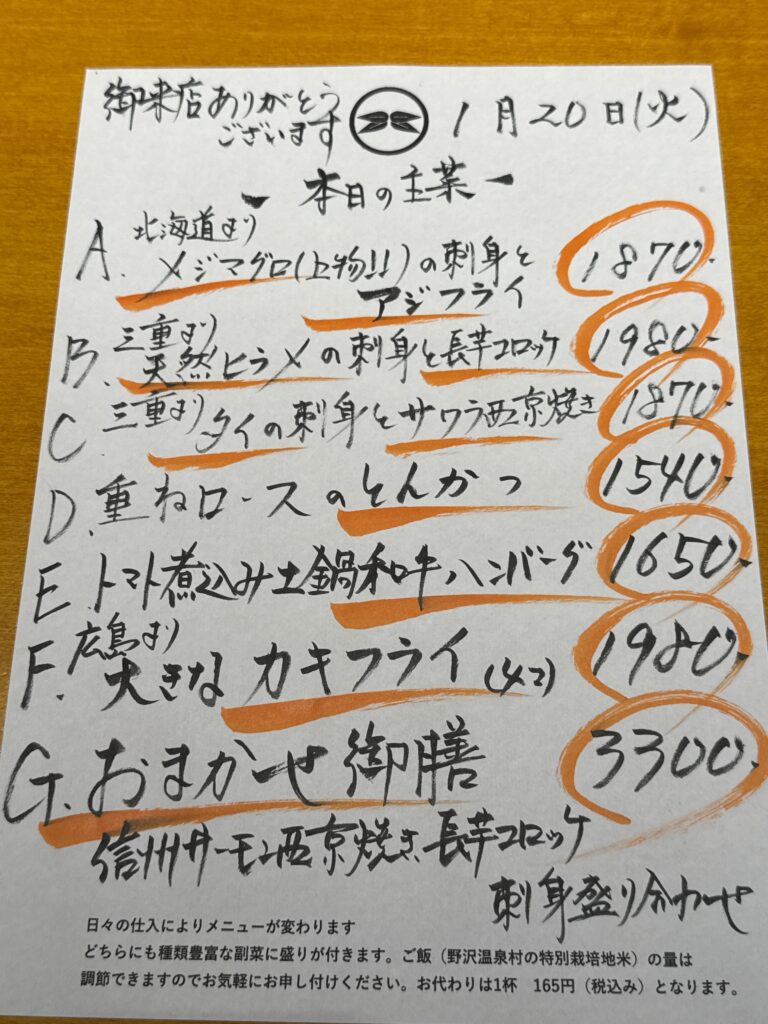 御来店ありがとう
ございます
1月20日(火)
ー 本日の主菜 ー
A. 北海道より
メジマグロ(上物!!)の刺身と
アジフライ 1870.
B. 三重より
天然ヒラメの刺身と長芋コロッケ 1980.
C. 三重より
タイの刺身とサワラ西京焼き 1870.
D. 重ねロースのとんかつ 1540.
E トマト煮込み土鍋和牛ハンバーグ 1650.
F. 広島より
大きなカキフライ(4コ) 1980.
G. おまかせ御膳 3300.
信州サーモン西京焼き、長芋コロッケ
刺身盛り合わせ
日々の仕入によりメニューが変わります
どちらにも種類豊富な副菜に盛りが付きます。ご飯(野沢温泉村の特別栽培地米)の量は
調節できますのでお気軽にお申し付けください。お代わりは1杯 165円(税込み)となります。